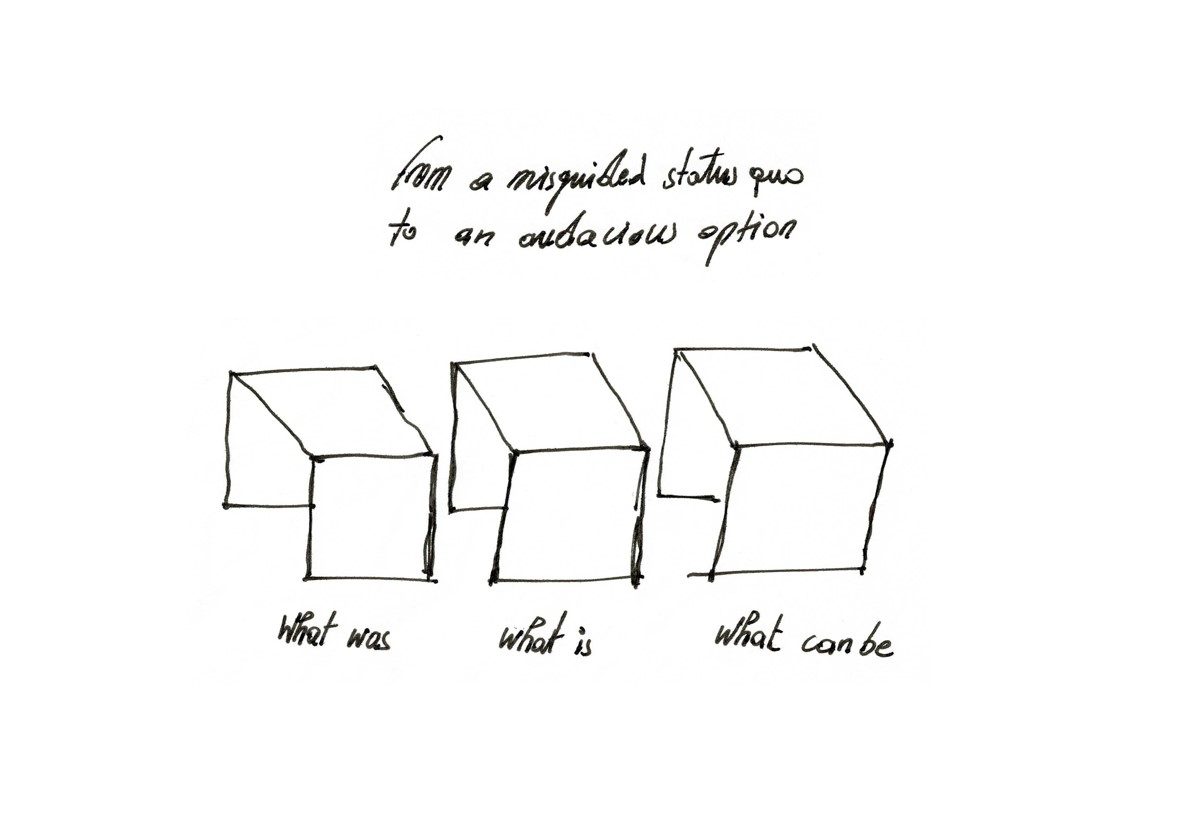 from a misguided status quo
to an audacious option
What was
what is
what can be